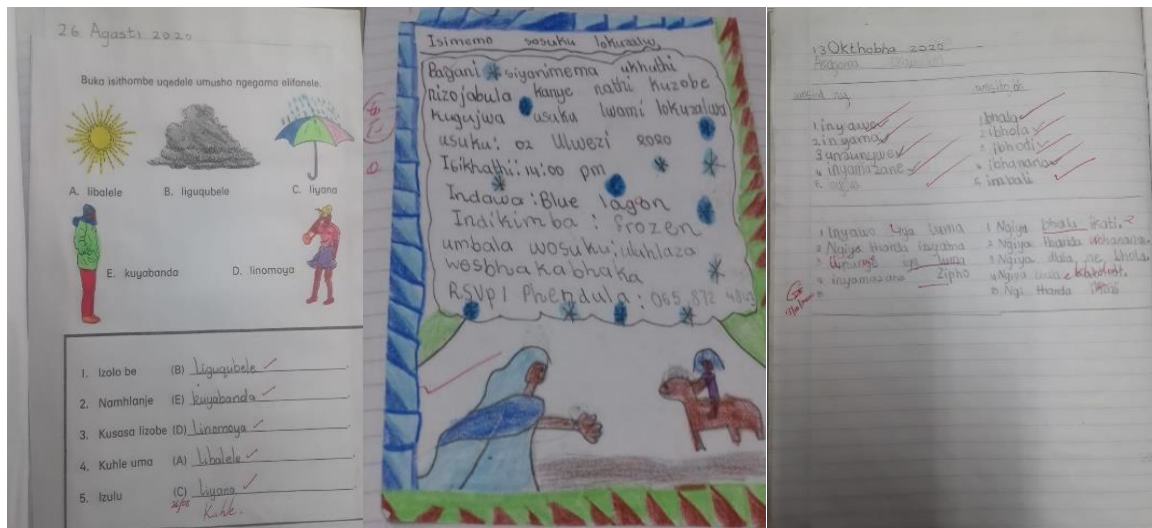 26 Agasti 2020
Buka isithombe uqedele umusho ngegama elifanele.
A. libalele
B. liguqubele
C. liyana
E. kuyabanda
D. linomoya
1. Izolo be (B) Liguqubele
2. Namhlanje (E) kuyabanda
3. Kusasa lizobe (D) Linomoya
4. Kuhle uma (A) Libalele
5. Izulu (C) Liyana
26/08
Kuhle.
Isimemo sosuku lokuzalwa
Bagani siyanimema ukhuthi
nizojabula kanye nathi kuzobe
kugujwa usuku lwami lokuzalwa
usuku: 02 Ulwezi 2020
Isikhathi: 14:00 pm
Indawo: Blue lagon
Indikimba: frozen
umbala wosuku: uluhlaza
wesbhakabhaka
RSVP / Phendula: 065 872
13 Okthobha 2020
1. inyawo
2. inyama
4. inyamazane
1. bhala
2. ibhola
3. ibhodi
4. ibhanana
5. imbali
1 Inyawo luma
2 Ngiya thanda inyama
4 inyamazane Zipho
1 Ngiya bhala ikati.
2 Ngiya thanda
3 Ngiya dlala ne bhola.
5 Ngi thanda